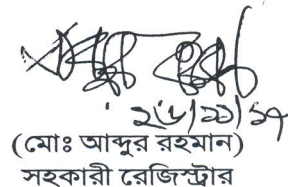 ২৬/১১/১৭
(মোঃ আব্দুর রহমান)
সহকারী রেজিস্ট্রার